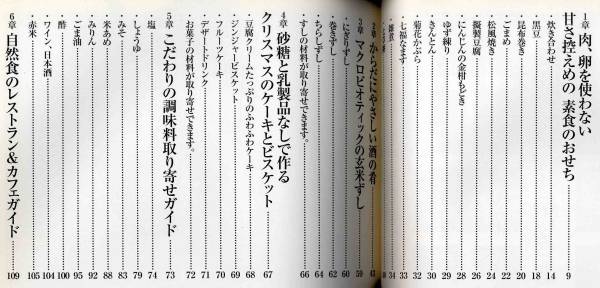 1章 肉、卵を使わない
甘さ控えめの 素食のおせち……9
・炊き合わせ……14
・黒豆……18
・昆布巻き……20
・ごまめ……22
・松風焼き……24
・擬製豆腐……26
・にんじんの金柑もどき……28
・ゆず練り……29
・きんとん……30
・菊花かぶら……32
・七福なます……33
・雑煮……34
2章 からだにやさしい酒の肴……43
3章 マクロビオティックの玄米ずし……59
・にぎりずし……60
・巻きずし……62
・ちらしずし……64
・すしの材料が取り寄せできます。……66
4章 砂糖と乳製品なしで作る
クリスマスのケーキとビスケット……67
・豆腐クリームたっぷりのふわふわケーキ……68
・ジンジャービスケット……69
・フルーツケーキ……70
・デザートドリンク……71
・お菓子の材料が取り寄せできます。……72
5章 こだわりの調味料取り寄せガイド……73
・塩……74
・しょうゆ……79
・みそ……83
・米あめ……88
・みりん……92
・ごま油……95
・酢……100
・ワイン、日本酒……104
・赤米……105
6章 自然食のレストラン&カフェガイド……109